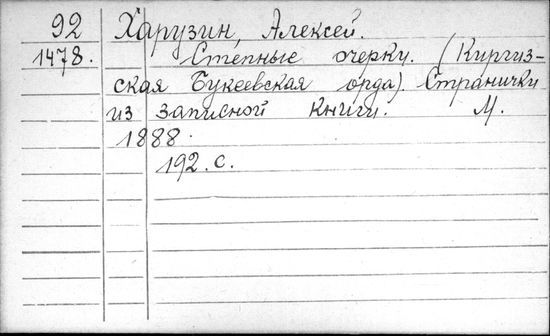 92 Харузин, Алексей.
1478. Степные очерки. (Киргиз-
ская Букеевская орда). Странички
из записной книги. М.
1888.
192. с.